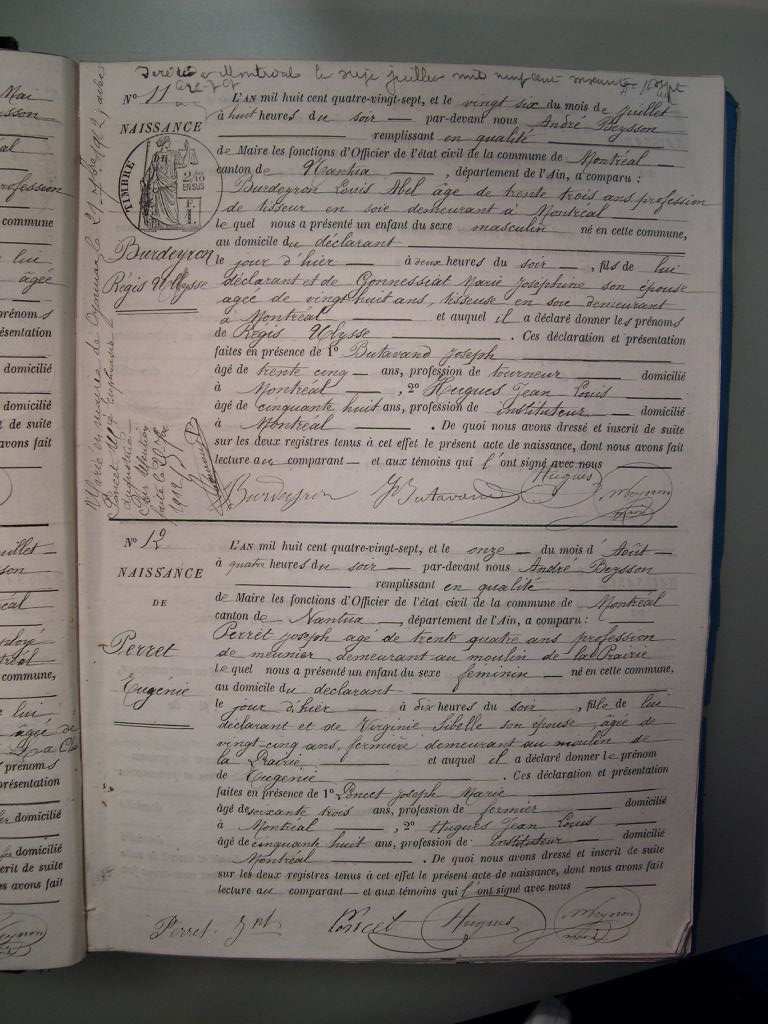 Décédé à Montréal le seize juillet mil neuf cent soixante
N° 11
NAISSANCE
TIMBRE
Burdeyron
Régis Ulysse
L'AN mil huit cent quatre-vingt-sept, et le vingt six du mois de Juillet
à huit heures du soir — par-devant nous André Beysson
remplissant en qualité
de Maire les fonctions d'Officier de l'état civil de la commune de Montréal
canton de Nantua, département de l'Ain, a comparu :
Burdeyron Louis Abel âgé de trente trois ans profession
de tisseur en soie demeurant à Montréal
le quel nous a présenté un enfant du sexe masculin né en cette commune,
au domicile du déclarant
le jour d'hier — à deux heures du soir, fils de lui
déclarant et de Gonnessiat Marie Joséphine son épouse
agée de vingt huit ans, tisseuse en soie demeurant
à Montréal — et auquel il a déclaré donner les prénoms
de Régis Ulysse. Ces déclaration et présentation
faites en présence de 1° Butavand Joseph
âgé de trente cinq — ans, profession de tourneur — domicilié
à Montréal, 2° Hugues Jean Louis
âgé de cinquante huit ans, profession de instituteur — domicilié
à Montréal. De quoi nous avons dressé et inscrit de suite
sur les deux registres tenus à cet effet le présent acte de naissance, dont nous avons fait
lecture au comparant — et aux témoins qui l'ont signé avec nous
Burdeyron Butavand Hugues
N° 12
NAISSANCE
DE
Perret
Eugénie
L'AN mil huit cent quatre-vingt-sept, et le onze — du mois d'Août
à quatre heures du soir — par-devant nous André Beysson
remplissant en qualité
de Maire les fonctions d'Officier de l'état civil de la commune de Montréal
canton de Nantua, département de l'Ain, a comparu :
Perret Joseph age de trente quatre ans profession
de meunier demeurant au moulin de la Prairie
le quel nous a présenté un enfant du sexe féminin — né en cette commune,
au domicile du déclarant
le jour d'hier — à dix heures du soir, fille de lui
déclarant et de Virginie Sibelle son épouse, âgée de
vingt-cinq ans, fermière demeurant au moulin de
la Prairie, et auquel il a déclaré donner le prénom
de Eugénie. Ces déclaration et présentation
faites en présence de 1° Poncet Joseph Marie
âgé de soixante trois ans, profession de fermier — domicilié
à Montréal, 2° Hugues Jean Louis
âgé de cinquante huit ans, profession de Instituteur — domicilié
Montréal. De quoi nous avons dressé et inscrit de suite
sur les deux registres tenus à cet effet le présent acte de naissance, dont nous avons fait
lecture au comparant — et aux témoins qui l'ont signé avec nous
Perret Poncet Hugues